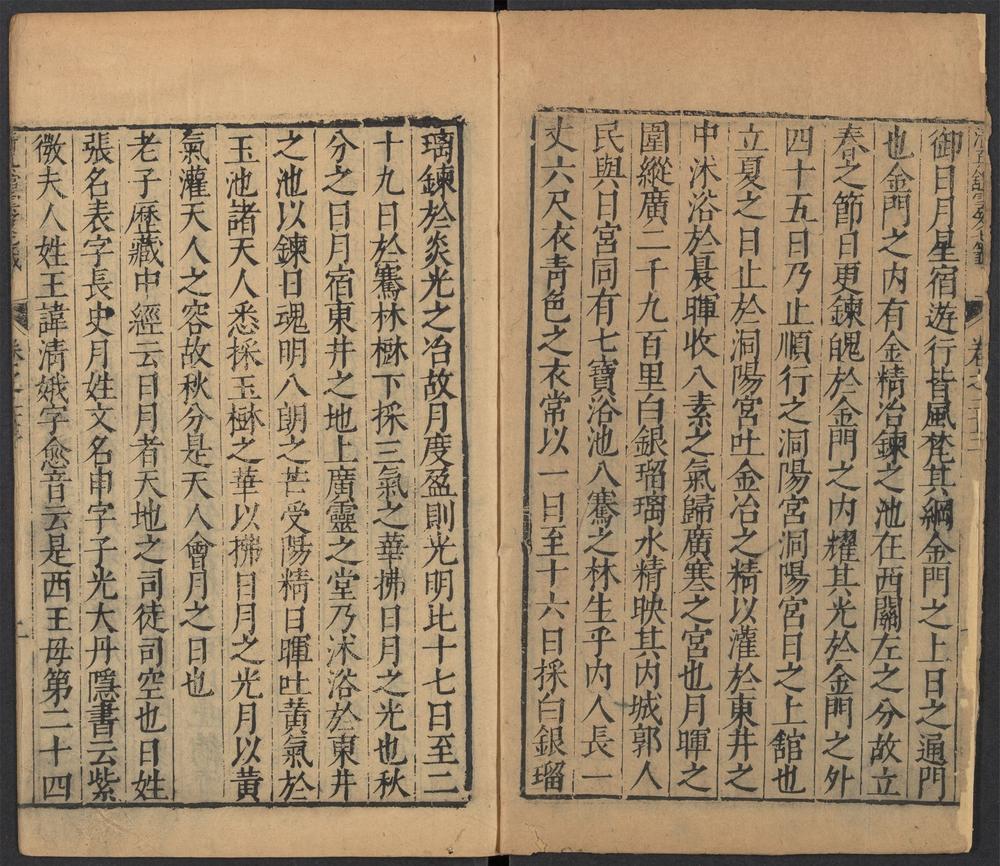 御日月星宿遊行皆風梵其綱金門之上日之通門
也金門之内有金精冶鍊之池在西關左之分故立
春之節日更鍊魄於金門之内耀其光於金門之外
四十五日乃止順行之洞陽宮洞陽宮日之上舘也
立夏之日止於洞陽宮吐金冶之精以灌於東井之
中沐浴於晨暉收八素之氣歸廣寒之宮也月暉之
圍縱廣二千九百里白銀瑠璃水精映其内城郭人
民與日宮同有七寶浴池八騫之林生乎内人長一
丈六尺衣青色之衣常以一日至十六日採白銀瑠
璃鍊於炎光之冶故月度盈則光明比十七日至二
十九日於騫林樹下採三氣之華拂日月之光也秋
分之日月宿東井之地上廣靈之堂乃沐浴於東井
之池以鍊日魂明八朗之芒受陽精日暉吐黃氣於
玉池諸天人悉採玉樹之華以拂日月之光月以黃
氣灌天人之容故秋分是天人會月之日也
老子歷藏中經云日月者天地之司徒司空也日姓
張名表字長史月姓文名申字子光大丹隱書云紫
微夫人姓王諱清娥字愈音云是西王母第二十四